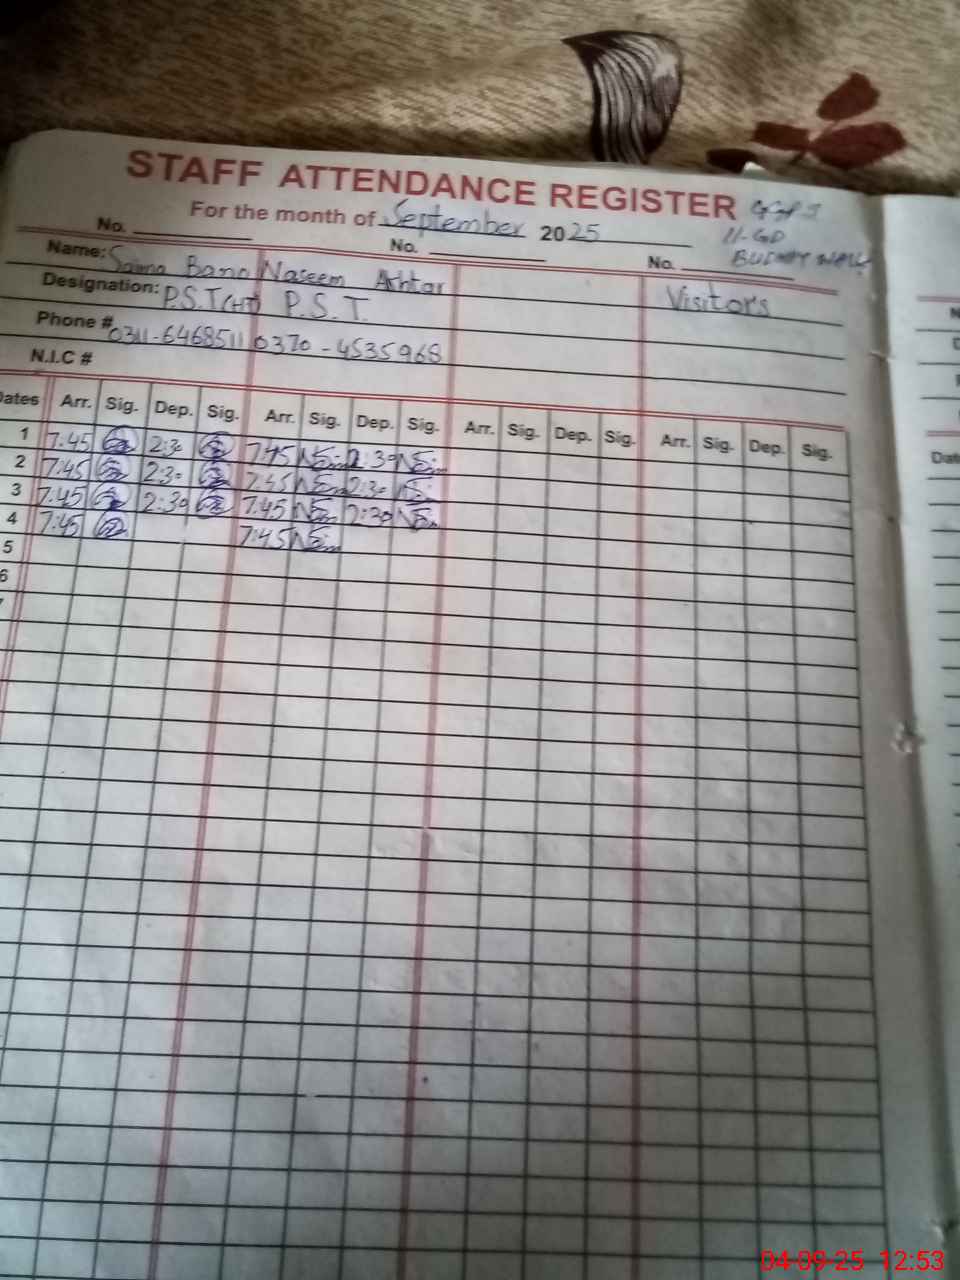 STAFF ATTENDANCE REGISTER GGPS
For the month of September 2025 11-GD
No. No. No.
Name: Saima Bano Naseem Akhtar Visitors
Designation: P.S.T(HT) P.S.T.
Phone # 0311-6468511 0370-4535968
N.I.C #
Dates Arr. Sig. Dep. Sig. Arr. Sig. Dep. Sig. Arr. Sig. Dep. Sig. Arr. Sig. Dep. Sig.
1 7:45 2:30 7:45 2:30
2 7:45 2:30 7:45 2:30
3 7:45 2:30 7:45 2:30
4 7:45 7:45
5
6
Dat
04-09-25 12:53